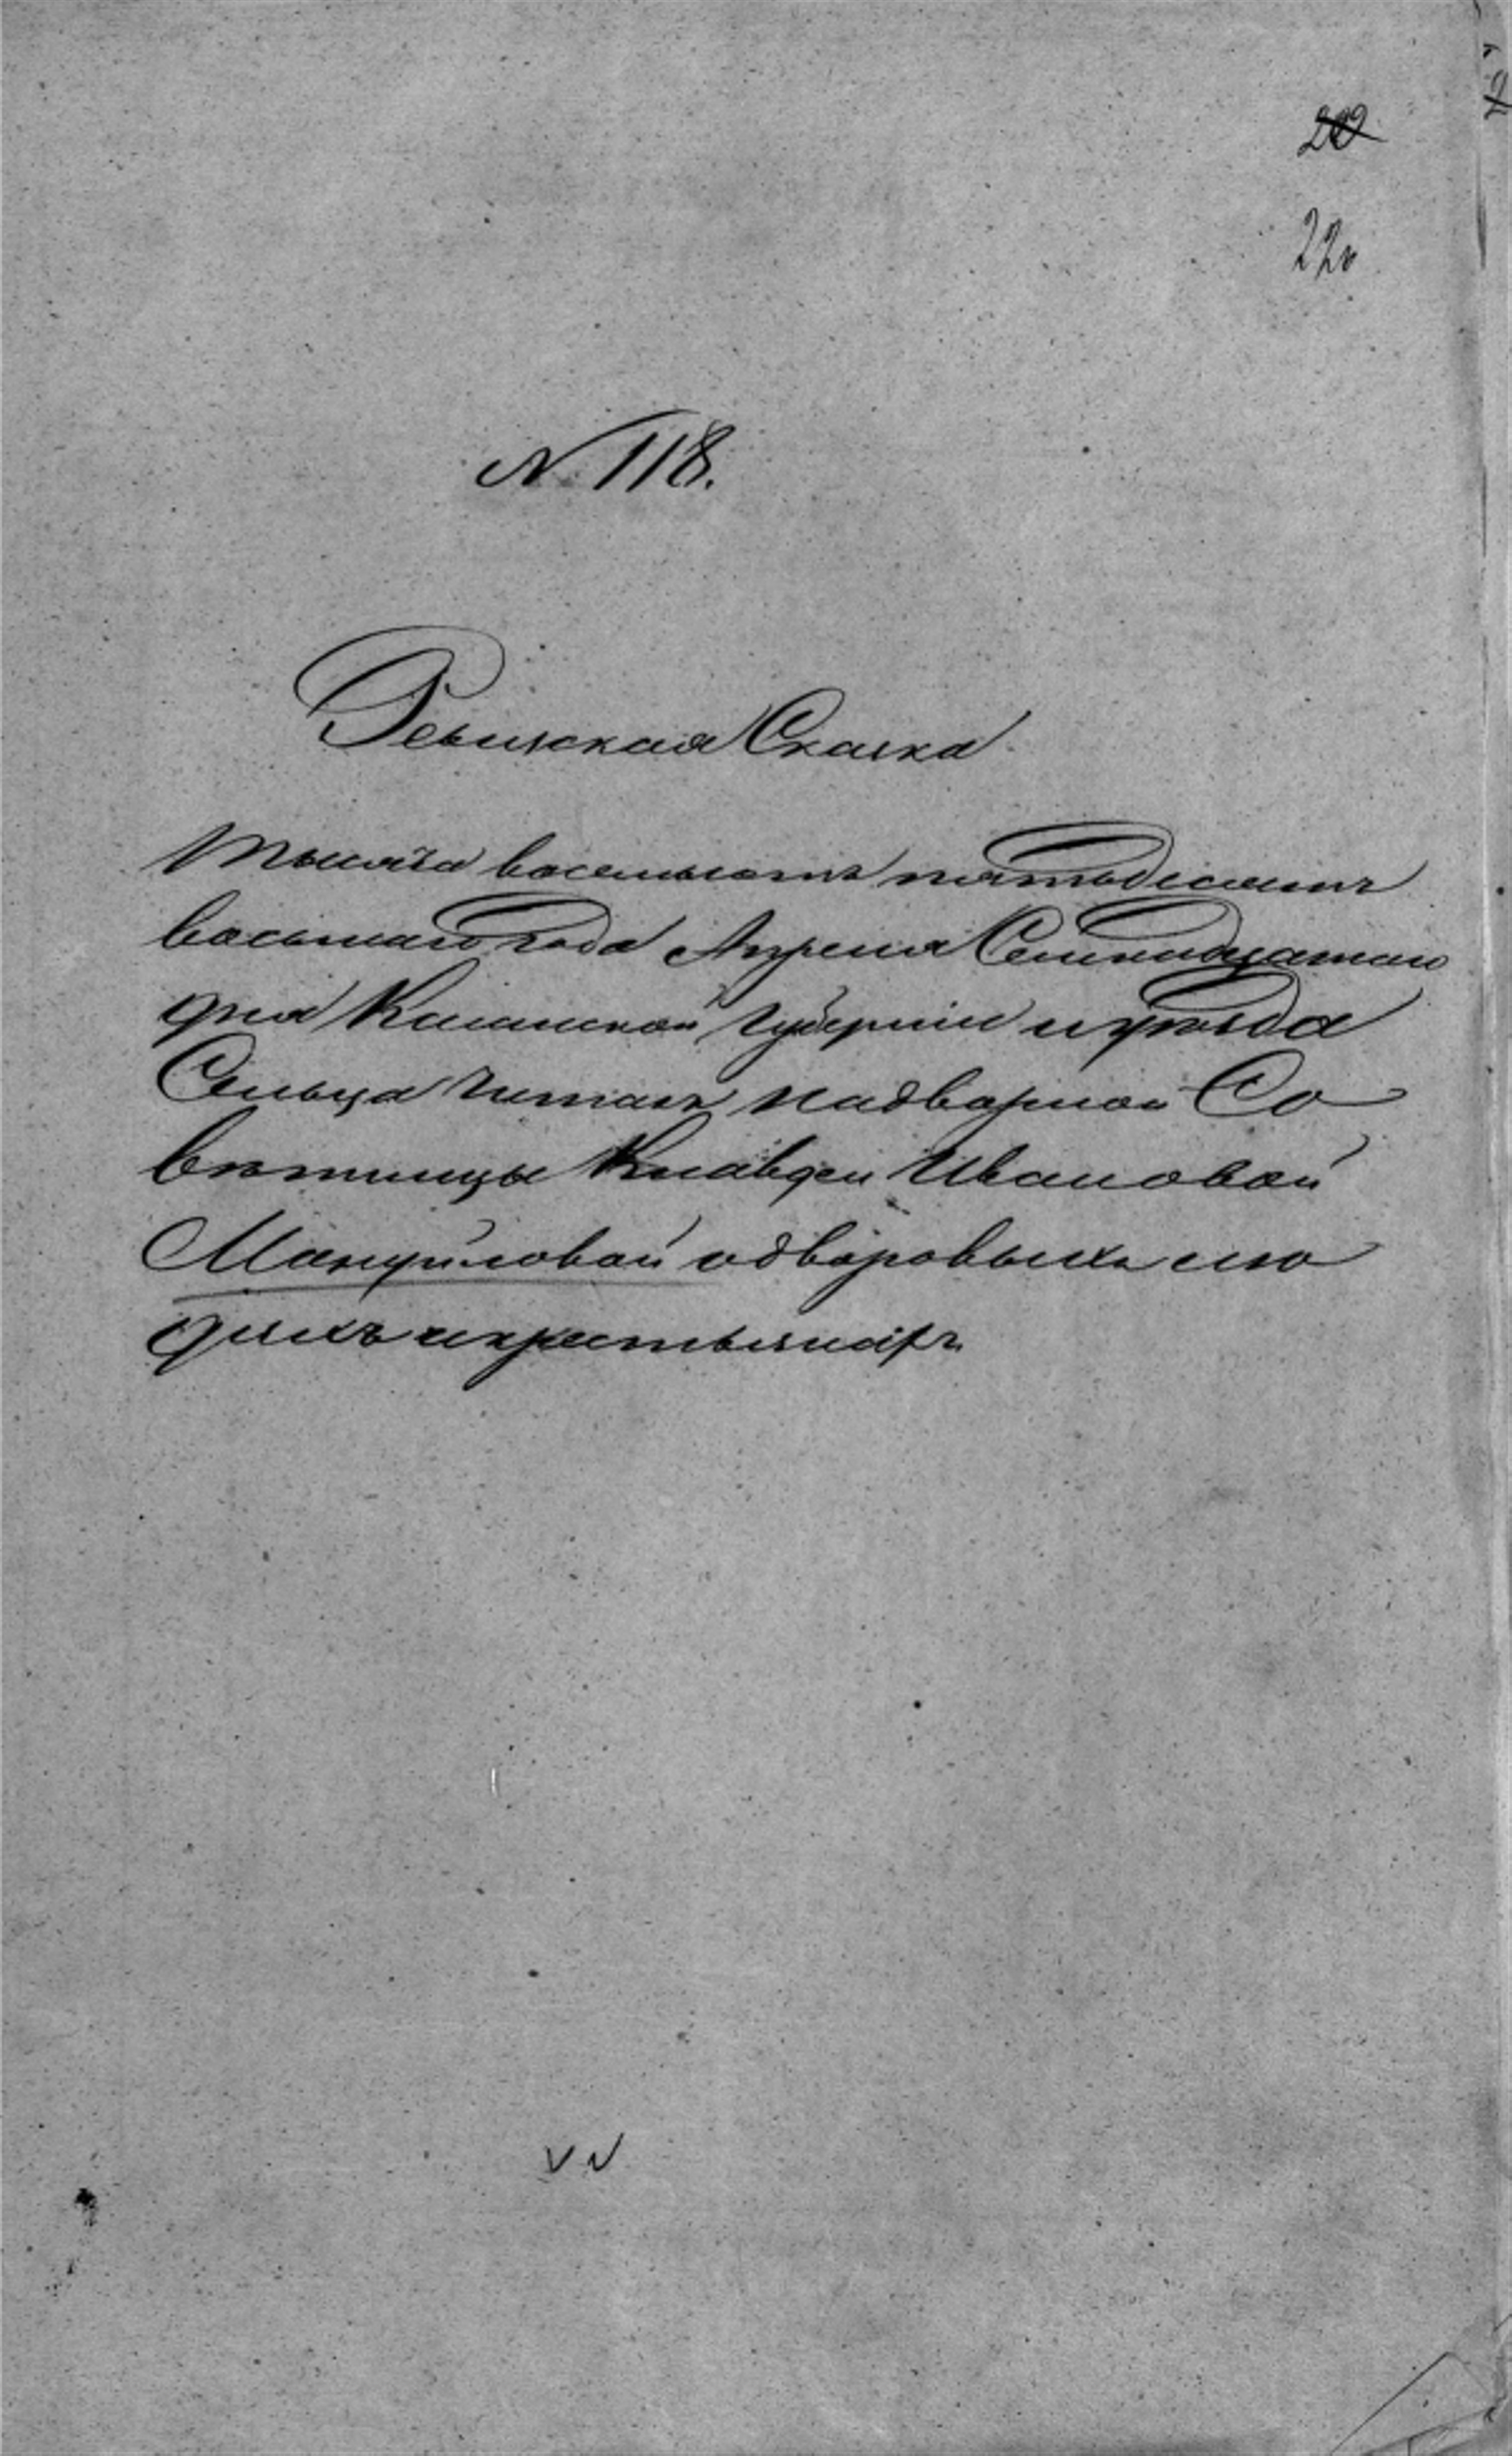 22
N 118.
Ревизская Сказка
Тысяча восемьсотъ пятьдесятъ
восьмаго года Апреля Семнадцатаго
дня Казанской Губерніи и уезда
Сельца надворной Со
ветницы Клавдеи Ивановой
Мансуровой о дворовыхъ лю
дяхъ и крестьянахъ